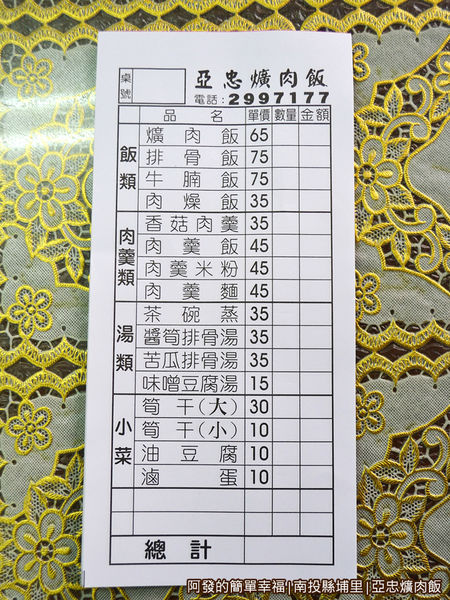 桌號
亞忠爌肉飯
電話：2997177
品名 單價 數量 金額
飯類
爌肉飯 65
排骨飯 75
牛腩飯 75
肉燥飯 35
肉羹類
香菇肉羹 35
肉羹飯 45
肉羹米粉 45
肉羹麵 45
湯類
茶碗蒸 35
醬筍排骨湯 35
苦瓜排骨湯 35
味噌豆腐湯 15
小菜
筍干(大) 30
筍干(小) 10
油豆腐 10
滷蛋 10
總計
阿發的簡單幸福|南投縣埔里|亞忠爌肉飯